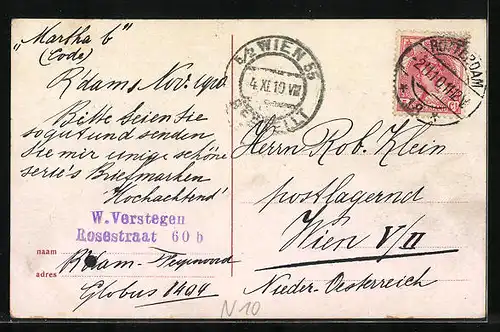 "Martha b"
(Code)
R'dam 5 Nov. 1910
Bitte seien Sie
so gut und senden
Sie mir einige schöne
serie's Briefmarken
Hochachtend'
W. Verstegen
Rosestraat 60 b
naam
adres
R'dam - Feyenoord
Globus 8494
N10
5/2 WIEN 55
4 XI 10 VIII
BESTELLT
ROTTERDAM
Herrn Rob. Klein
postlagernd
Wien V/II
Nieder-Oesterreich